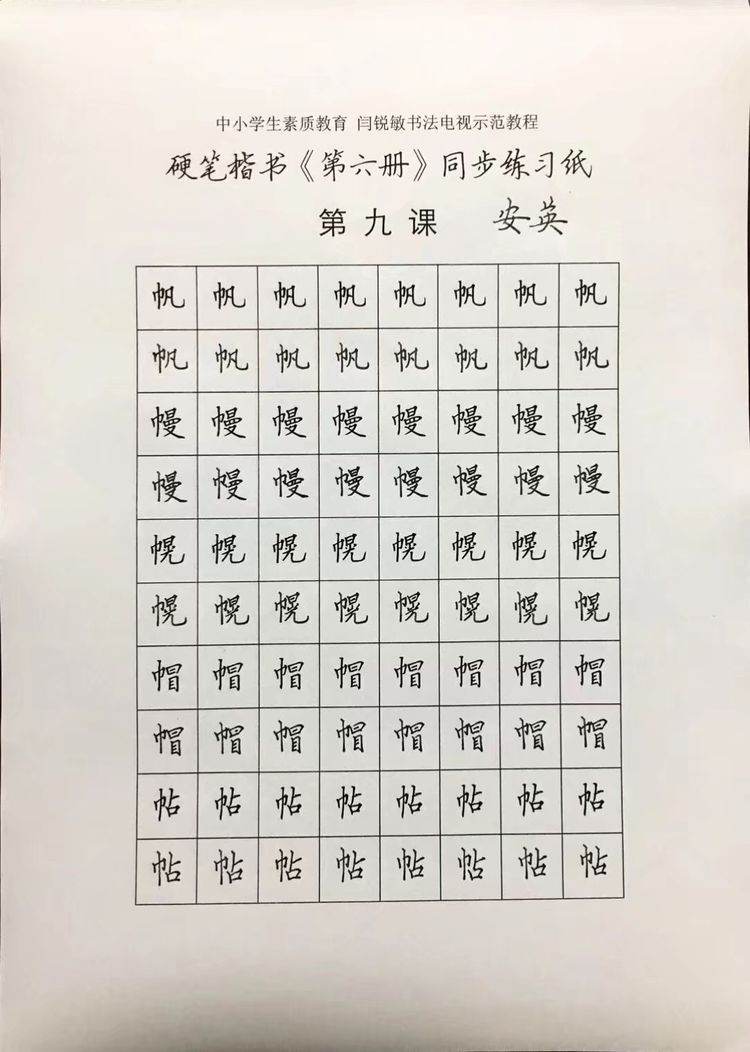 中小学生素质教育 闫锐敏书法电视示范教程
硬笔楷书《第六册》同步练习纸
第九课 安英
帆 帆 帆 帆 帆 帆 帆 帆
帆 帆 帆 帆 帆 帆 帆 帆
幔 幔 幔 幔 幔 幔 幔 幔
幔 幔 幔 幔 幔 幔 幔 幔
幌 幌 幌 幌 幌 幌 幌 幌
幌 幌 幌 幌 幌 幌 幌 幌
帽 帽 帽 帽 帽 帽 帽 帽
帽 帽 帽 帽 帽 帽 帽 帽
帖 帖 帖 帖 帖 帖 帖 帖
帖 帖 帖 帖 帖 帖 帖 帖